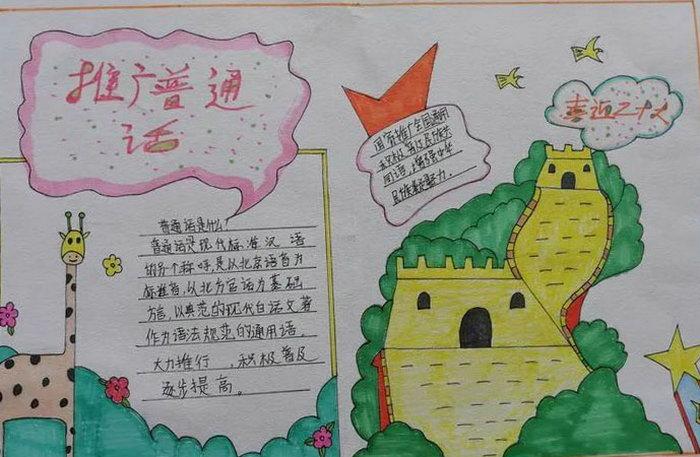 推广普通
话
普通话是什么?
普通话是现代标准汉语
的另个称呼,是以北京语音为
标准音,以北方官话为基础
方言,以典范的现代白话文著
作为语法规范的通用语
大力推行 ,积极普及
逐步提高。
国家推广全国通用
积极
用语,增强中华
民族凝聚力.
喜迎二十大